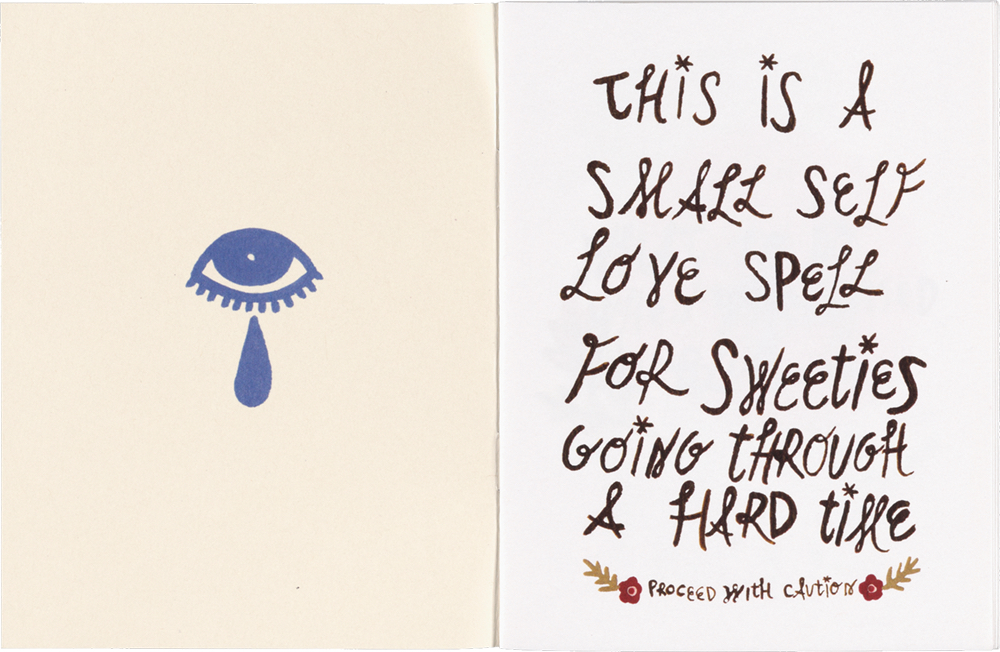 THiS iS A
SMALL SELF
LOVE SPELL
FOR SWEETiES
GOiNG tHROUGH
A HARD tiME
PROCEED WitH CAUtiON